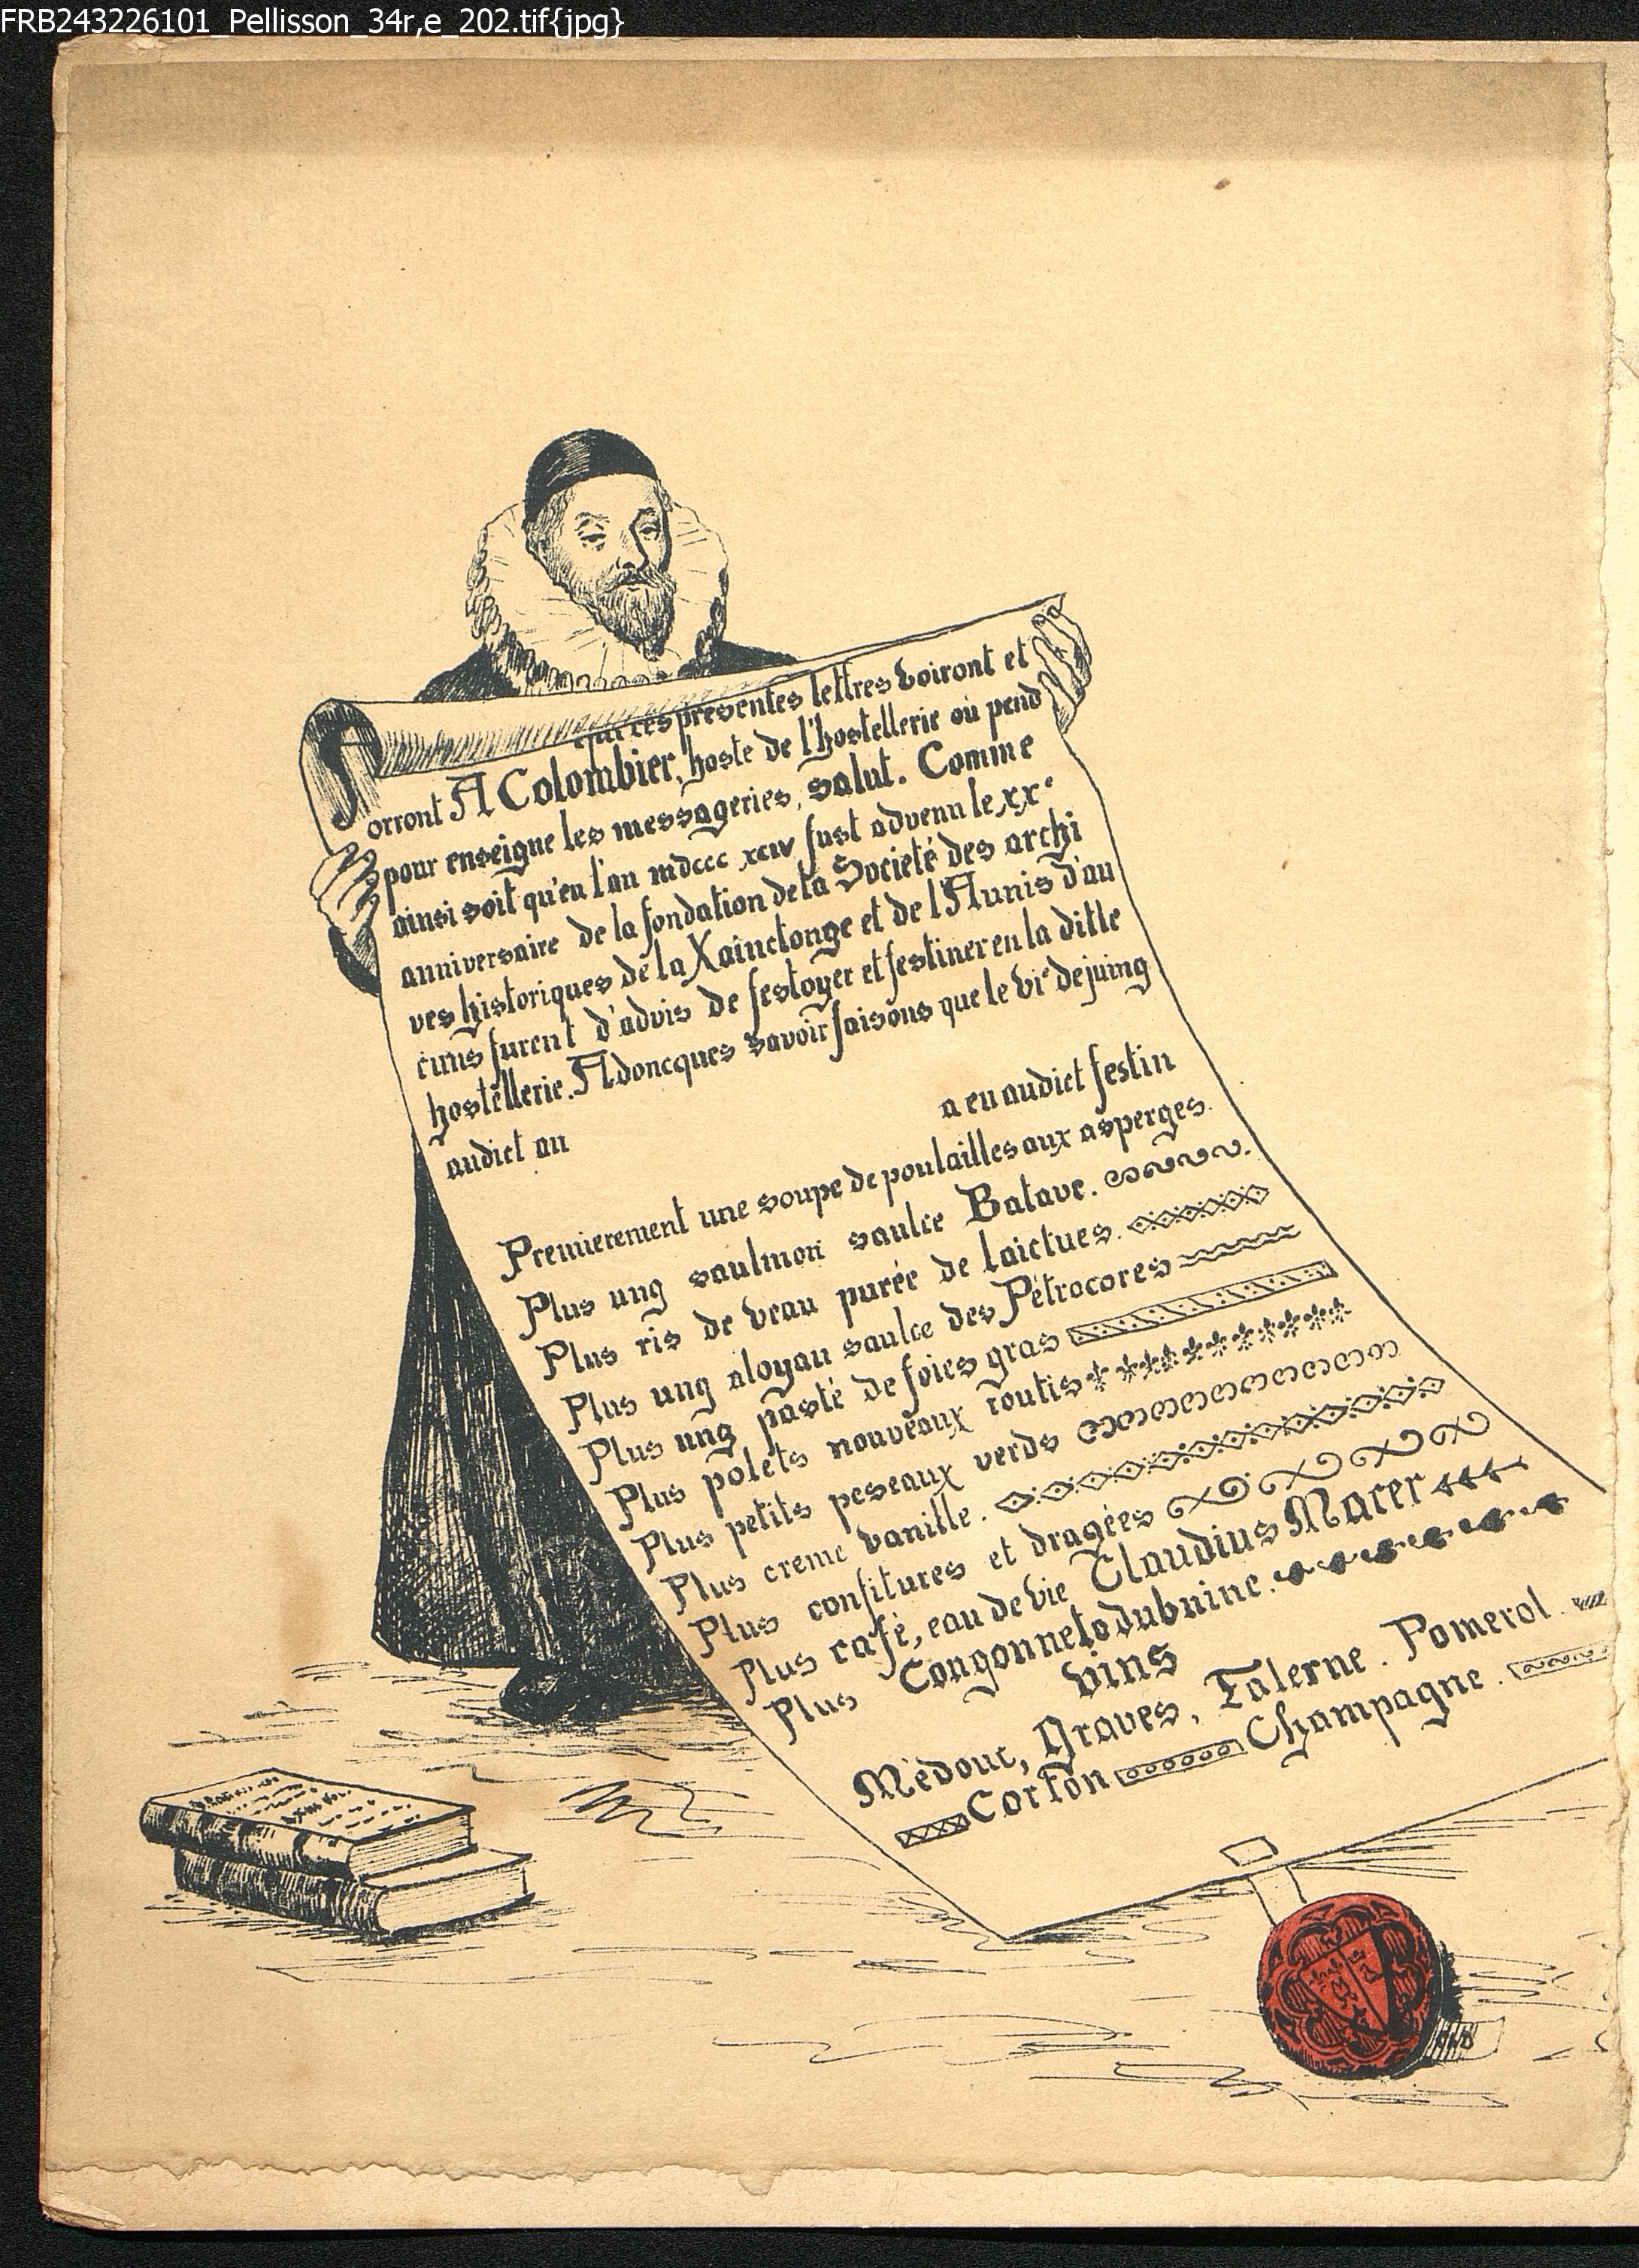 FRB243226101_Pellisson_34r,e_202.tif{jpg}
qui ces presentes lettres voiront et
orront A Colombier, hoste de l'hostellerie où pend
pour enseigne les messageries, salut. Comme
ainsi soit qu'en l'an mdccc xciv fust advenu le xxe
anniversaire de la fondation de la Societé des archi
ves historiques de la Xainctonge et de l'Aunis d'au
cuns furent d'advis de festoyer et festiner en la ditte
hostellerie. Adoncques savoir faisons que le vie de juing
audict an
a eu audict festin
Premierement une soupe de poulailles aux asperges.
Plus ung saulmon saulce Batave.
Plus ris de veau purée de laictues.
Plus ung aloyau saulce des Pétrocores
Plus ung pasté de foies gras
Plus polets nouveaux routis
Plus petits peseaux verds
Plus creme vanille.
Plus confitures et dragées
Plus café, eau de vie Claudius Macer
Plus Congonnetodubnine.
vins
Médouc, Graves, Falerne. Pomerol.
Corton Champagne.